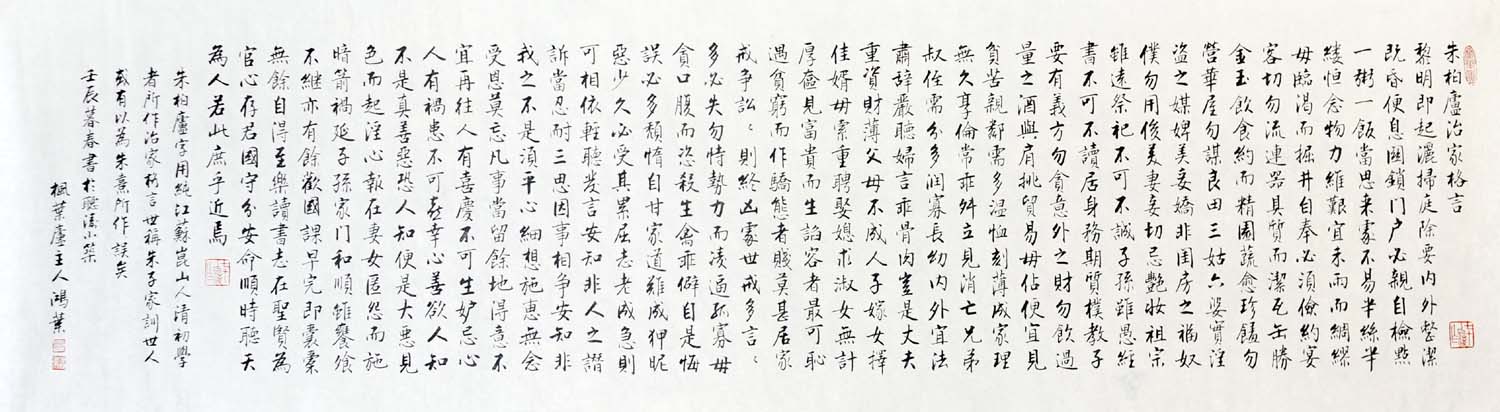 朱柏廬治家格言
黎明即起灑掃庭除要内外整潔
既昏便息關鎖门户必親自檢點
一粥一飯當思来處不易半絲半
縷恒念物力維艱宜未雨而綢繆
毋臨渴而掘井自奉必須儉約宴
客切勿流連器具質而潔瓦缶勝
金玉飲食約而精園蔬愈珍饈勿
營華屋勿謀良田三姑六婆實淫
盜之媒婢美妾嬌非閨房之福奴
僕勿用俊美妻妾切忌艷妝祖宗
雖遠祭祀不可不誠子孫雖愚經
書不可不讀居身務期質樸教子
要有義方勿貪意外之財勿飲過
量之酒與肩挑貿易毋佔便宜見
貧苦親鄰需多温恤刻薄成家理
無久享倫常乖舛立見消亡兄弟
叔侄需分多润寡長幼内外宜法
肅辭嚴聽婦言乖骨肉豈是丈夫
重資財薄父母不成人子嫁女擇
佳婿毋索重聘娶媳求淑女無計
厚奩見富貴而生諂容者最可恥
遇貧窮而作驕態者賤莫甚居家
戒争訟：則終凶處世戒多言：
多必失勿恃勢力而凌逼孤寡毋
貪口腹而恣殺生禽乖僻自是悔
誤必多頹惰自甘家道難成狎昵
惡少久必受其累屈志老成急則
可相依輕聽发言安知非人之譖
訴當忍耐三思因事相争安知非
我之不是須平心细想施惠無念
受恩莫忘凡事當留餘地得意不
宜再往人有喜慶不可生妒忌心
人有禍患不可喜幸心善欲人知
不是真善惡恐人知便是大惡見
色而起淫心報在妻女匿怨而施
暗箭禍延子孫家门和順雖饔飧
不继亦有餘歡國課早完即囊橐
無餘自得至樂讀書志在聖賢為
官心存君國守分安命順時聽天
為人若此庶乎近焉
朱柏廬字用純江蘇崑山人清初學
者所作治家格言世稱朱子家訓世人
或有以為朱熹所作誤矣
壬辰暮春書於聽濤小築
楓葉廬主人鴻葉